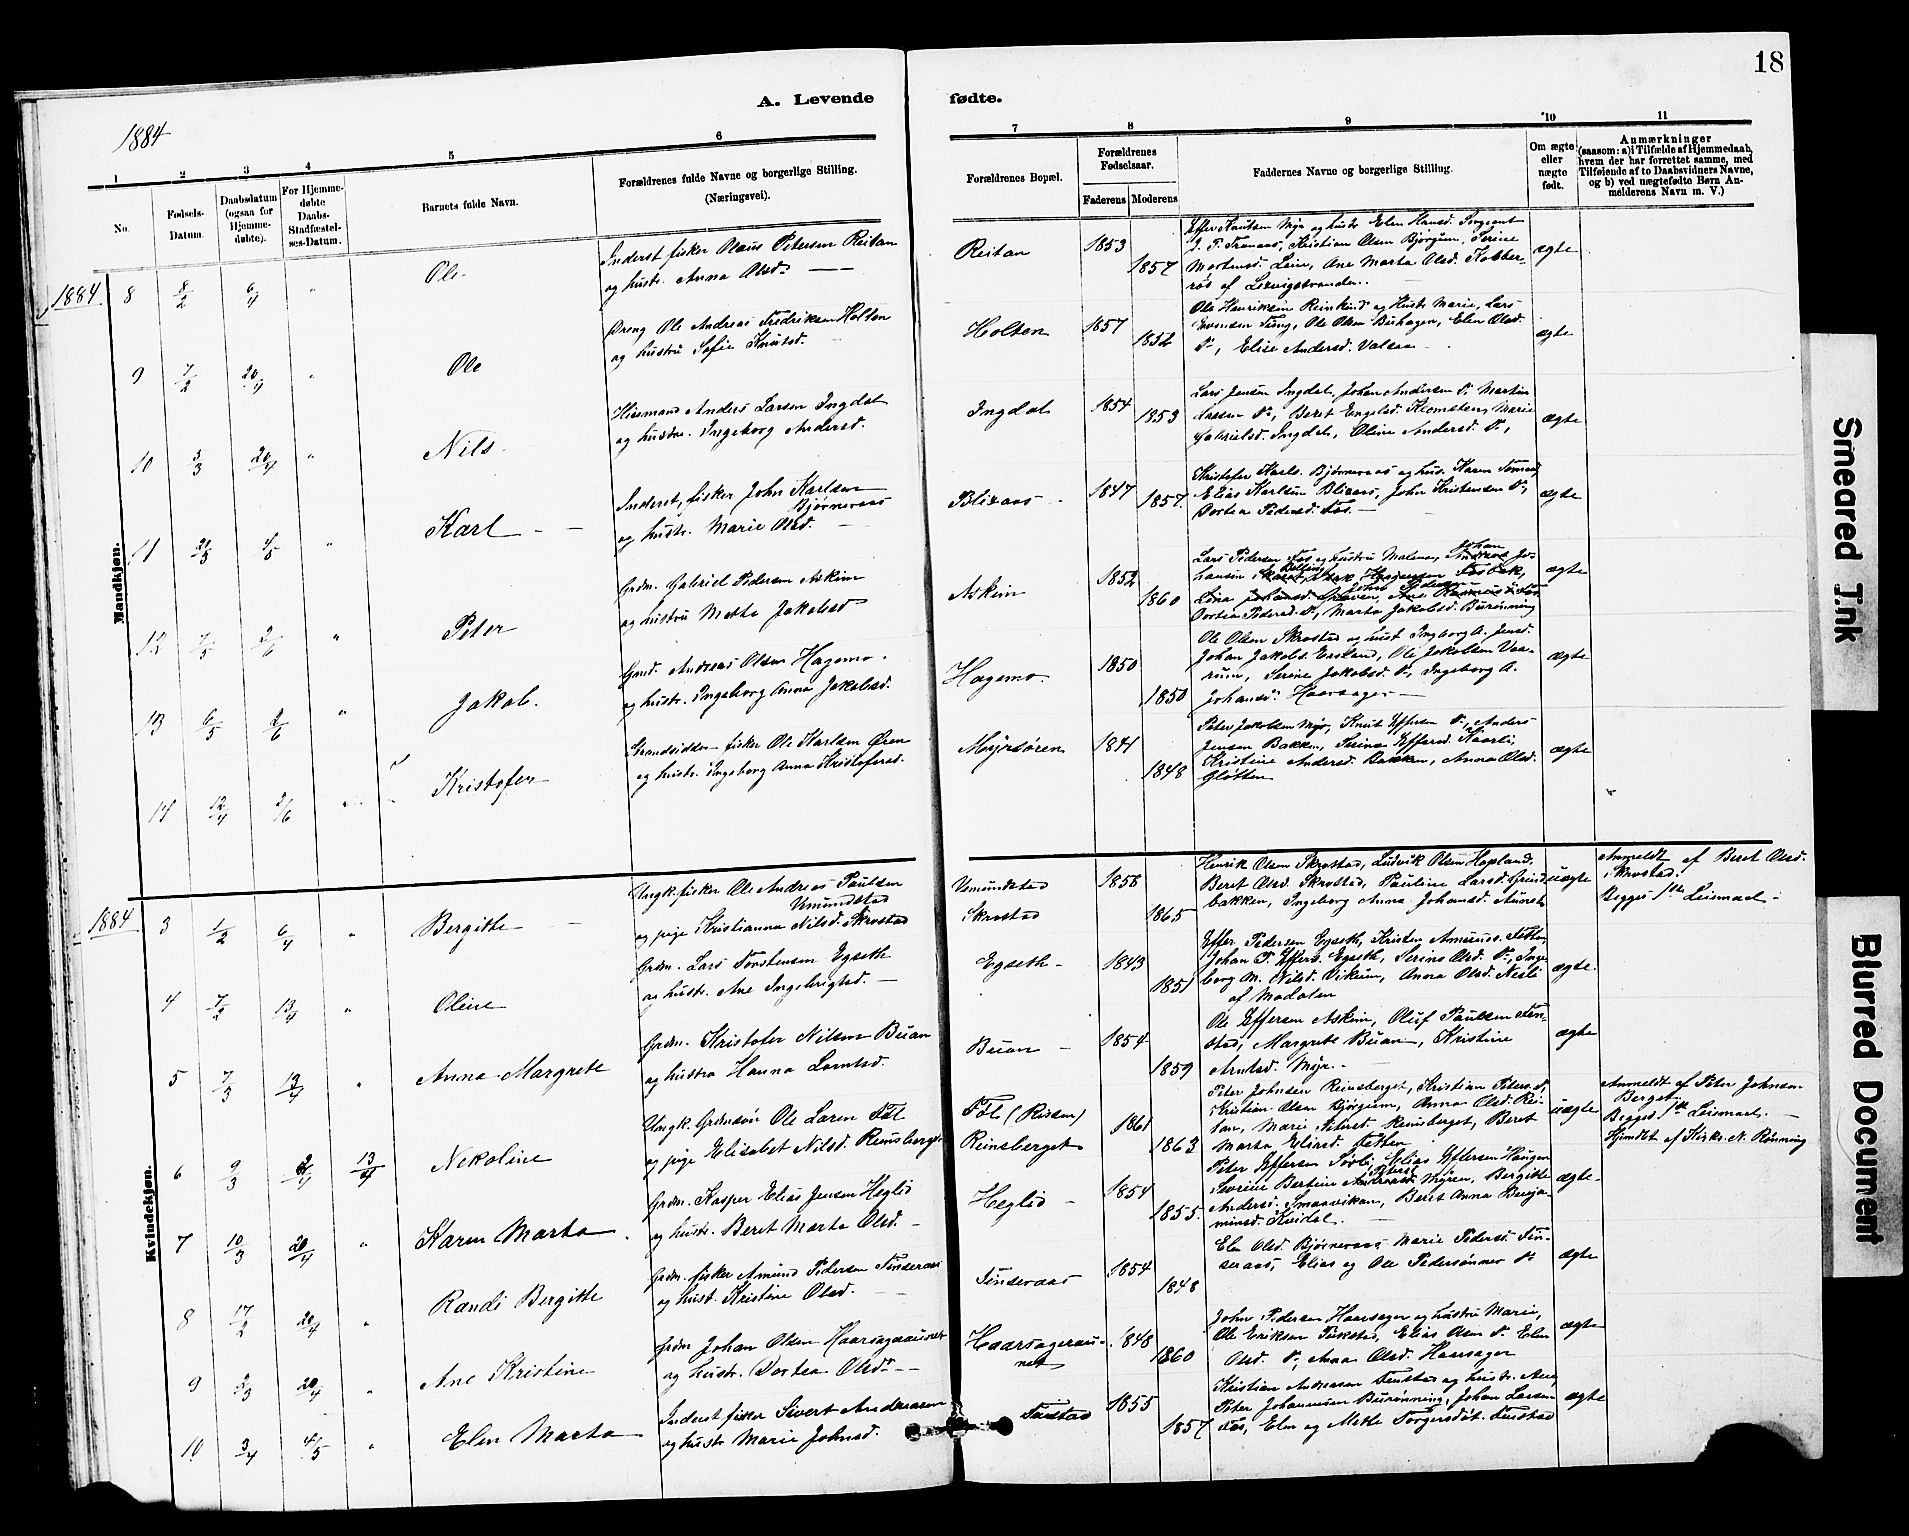 18
A. Levende fødte.
1884
1 2 3 4 5 6 7 8 9 10 11
No.
Fødsels-Datum.
Daabsdatum (ogsaa for Hjemmedøbte).
For Hjemmedøbte Daabs-Stadfæstelses-Datum.
Barnets fulde Navn.
Forældrenes fulde Navne og borgerlige Stilling. (Næringsvei).
Forældrenes Bopæl.
Forældrenes Fødselsaar.
Faderens Moderens
Faddernes Navne og borgerlige Stilling.
Om ægte eller uægte født.
Anmærkninger
(saasom: a) i Tilfælde af Hjemmedaab,
hvem der har forrettet samme, med
Tilføiende af to Daabsvidners Navne,
og b) ved uægtefødte Børn Anmelderens Navn m. V.)
Mandkjøn.
1884 8 8/2 6/4 " Ole
Inderst fisker Olaus Petersen Reitan
og hustr. Anna Olsd.
Reitan 1853 1857
Effer Knutsen Myr og hustr. Elen Hansd. Sergeant
J. P. Tranaas, Kristian Olsen Bjørgum, Serine
Mortensd. Lein, Ane Marta Olsd. Kobber-
røs af Lensvigstranden.
ægte
9 7/2 20/4 " Ole
Dreng Ole Andreas Fredriksen Holten
og hustru Sofie Knutsd.
Holten 1857 1852
Ole Henriksen Reinkind og Hustr. Marie, Lars
Evensen Ting, Ole Olsen Berhagen, Elen Olsd.
Do, Elise Andersd. Valsaa
ægte
10 5/3 20/4 " Nils
Husmand Anders Larsen Ingdal
og hustru. Ingeborg Andersd.
Ingdal 1854 1853
Lars Jensen Ingdal, Johan Andersen Do, Martin
Larsen Do, Beret Engelsd. Klomsten, Marie
Gabrielsd. Ingdal, Oline Andersd. Do,
ægte
11 21/3 4/5 " Karl
Inderst, fisker John Karlsen
Bjørneraas
og hustr. Marie Olsd.
Blixaas 1847 1857.
Kristofer Karls. Bjørneraas og hus. Karen Tomasd.
Elias Karlsen Blixaas, John Kristensen Do,
Dortea Pedersd. Fos.
ægte
12 7/5 2/6 " Peter
Grdm. Gabriel Pedersen Askim
og hustru Mette Jakobsd
Askim 1852 1860
Lars Pedersen Fos og hustru Malena, Johan
Dortea Pedersd. Do, Marta Jakobsd. Burønning
ægte
13 6/5 2/6 " Jakob.
Gmd. Andreas Olsen Hagemo.
og hustr. Ingeborg Anna Jakobsd.
Hagemo. 1850 1850
Ole Olsen Skrostad og hust Ingborg A. Jensd.
Johan Jakobs. Erstand, Ole Jakobsen Vaa-
rum, Serine Jakobsd. Do, Ingeborg A.
Johansdr. Haarsager
ægte
14 12/4 2/6 " Kristofer
Strandsidder fisker Ole Karlsen Øren
og hustr. Ingeborg Anna Kristofersd.
Myrsøren 1841 1848
Peter Jakobsen Myr, Knut Effersen Do, Anders
Jensen Bakken, Serine Effersd. Kaarli,
Kristine Andersd. Bakken, Anna Olsd.
Gløtten
ægte
Kvindekjøn.
1884 3 1/2 6/4 " Bergitte
Ungk. fisker Ole Andreas Paulsen
Umundstad
og pige Kristianna Nilsd. Skrostad
Umundstad
Skrostad
1856 1865
Henrik Olsen Skrostad, Ludvik Olsen Hopland.
Beret Olsd. Skrostad, Pauline Larsd. Grind-
bakken, Ingeborg Anna Johansd. Aunet
uægte
Anmeldt af Beret Olsd.
Skrostad.
Begges 1ste Leiermaal
4 7/2 13/4 " Oline
Grdm. Lars Torstensen Egseth
og hustr. Ane Ingebrigtsd.
Egseth 1843 1851
Effer Pedersen Egseth, Kristen Amunds. Fetten
Johan P. Effers. Egseth, Serine Olsd. Do, Inge-
borg M. Nilsd. Vikum, Anna Olsd. Nesli
af Modalen
ægte.
5 7/3 13/4 " Anna Margrete
Grdm. Kristofer Nilsen Buan
og hustru Hanna Larntsd.
Buan 1854 1859
Ole Effersen Askim, Oluf Paulsen Fen-
stad, Margrete Buan, Kristine
Arntsd. Myr.
ægte
6 9/3 2/4 13/4 Nekoline
Ungk. Grdmsøn Ole Larsen Føl
og pige Elisabet Nilsd. Reinsberget
Føl (Rissen)
Reinsberget
1861 1863
Peter Johnsen Reinsberget, Kristian Peters. Do,
Kristian Olsen Bjørgum, Anna Olsd. Rei-
tan, Marie Petersd. Reinsberget, Beret
Marta Eliasd. Fetten
uægte
Anmeldt af Peter Johnsen
Berget.
Begges 1ste Leiermaal.
Hjemdøbt af Kirks. N. Rønning
7 10/3 20/4 " Karen Marta
Grdm. Kasper Elias Jensen Heglid
og hustr. Beret Marta Olsd.
Heglid 1854 1855.
Peter Effersen Sørli, Elias Effersen Haugen
Sevrine Bertine Petersd. Myren, Bergitte
Andersd. Smaavikan, Beret Anna Benja-
minsd. Kvidal.
ægte
8 17/2 20/4 " Randi Bergitte
Grdm. fisker Amund Pedersen Tinderaas
og hust. Kristine Olsd.
Tinderaas 1854 1848
Elen Olsd. Bjørneraas, Marie Pedersd. Tin-
deraas, Elias og Ole Pedersønner Do
ægte
9 2/3 20/4 " Ane Kristine
Grdm Johan Olsen Haarsageraunet
og hustr. Dortea Olsdr
Haarsagerau-
net
1848 1860
John Pedersen Haarsager og hustru Marie,
Ole Eriksen Pukstad, Elias Olsen Do Elen
Olsd. Do, Anna Olsd. Haarsager
ægte
10 3/4 4/5 " Elen Marta
Inderst fisker Sivert Andreasen
og hustr Marie Johnsd.
Fenstad 1855 1857
Kristian Andreasen Fenstad og hustr. Ane,
Peter Johannesen Burønning, Johan Larsen
Fos, Elen og Mette Torgersdøt. Fenstad
ægte
Smeared Ink
Blurred Document